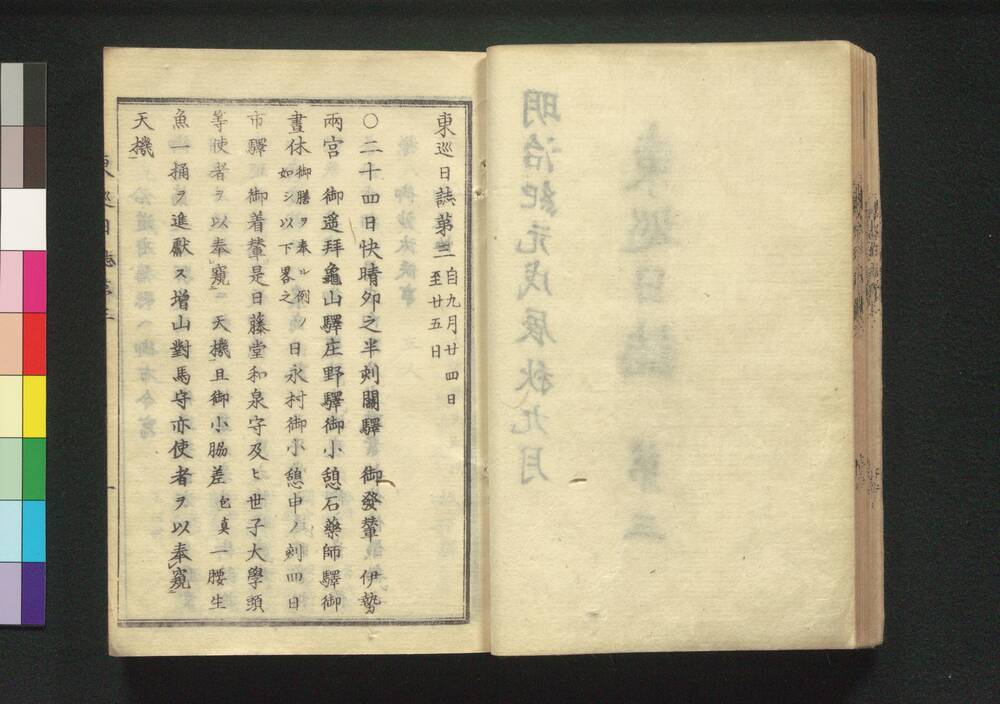 東巡日誌第三 自九月廿四日
至廿五日
〇二十四日快晴夘之半刻關驛 御發輦 伊勢
兩宮 御遥拜龜山驛庄野驛御小憩石藥師驛御
晝休 御膳ヲ奉ル例ノ
如シ以下畧之 日永村御小憩申ノ刻四日
市驛 御着輦是日藤堂和泉守及ヒ世子大學頭
等使者ヲ以奉窺 天機且御小脇差 包真 一腰生
魚一桶ヲ進獻ス增山對馬守亦使者ヲ以奉窺
天機
明治紀元戊辰秋九月
東巡日誌 第三